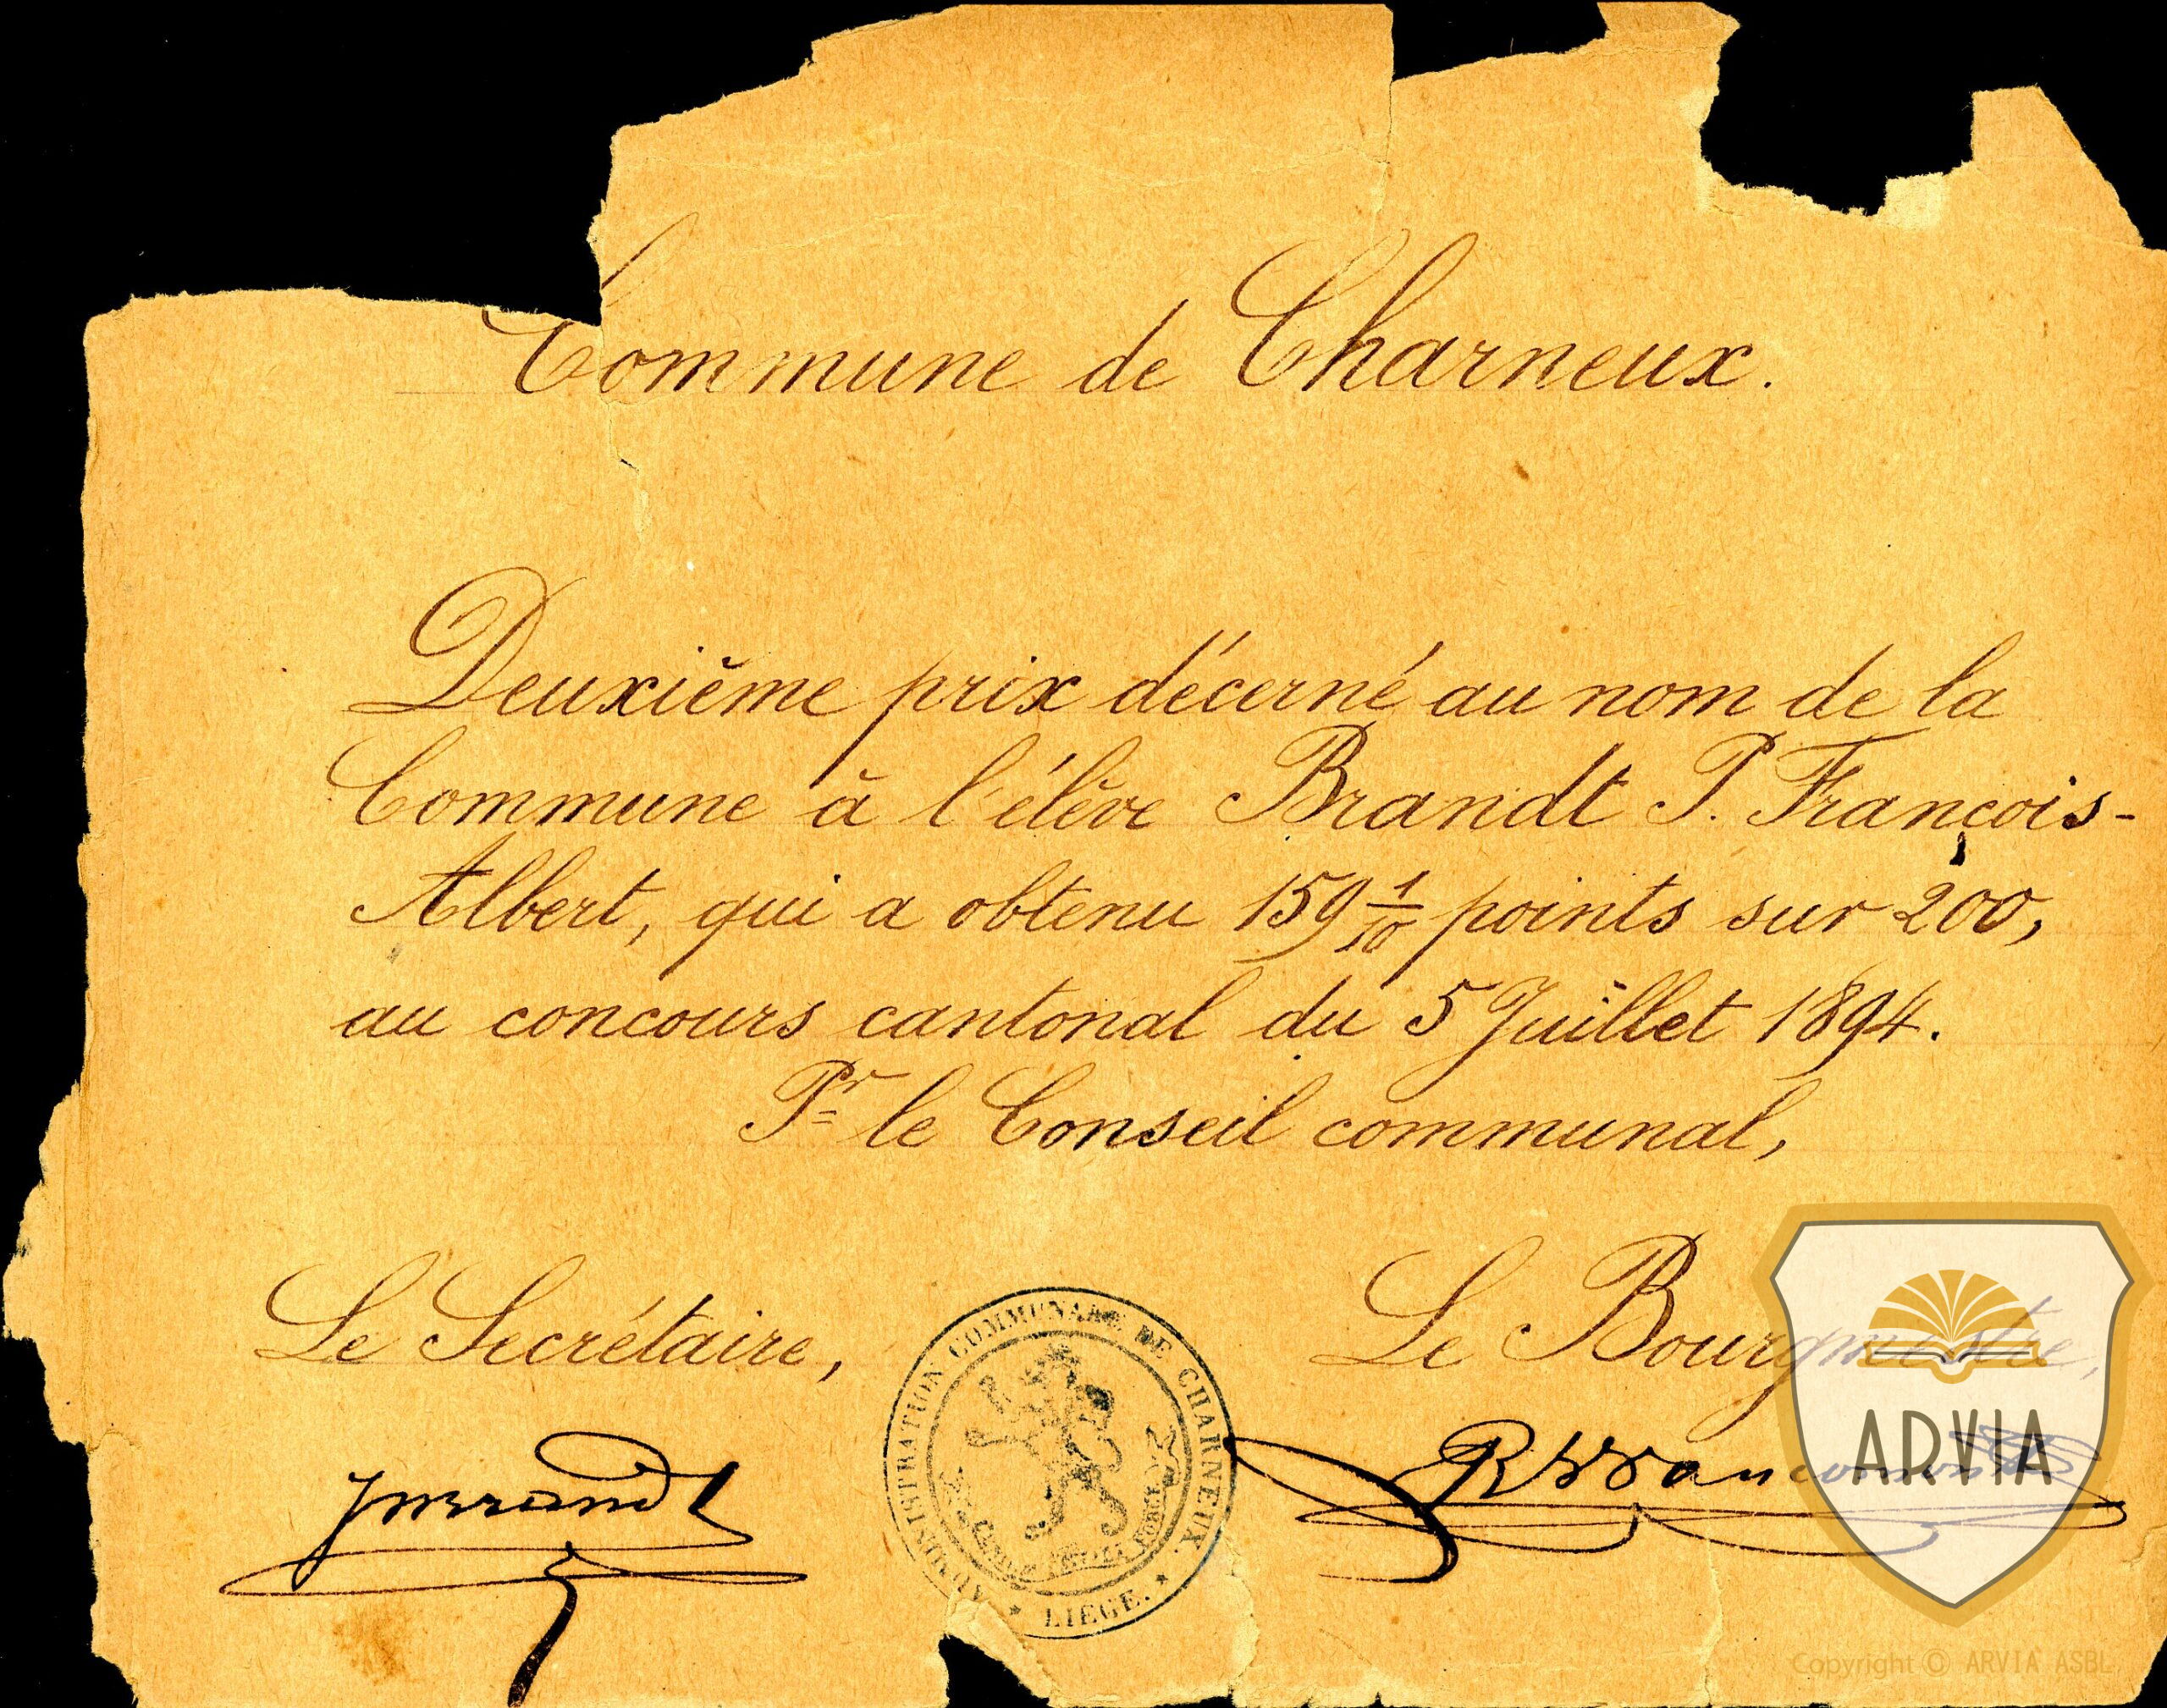 Commune de Charneux.
Deuxième prix décerné au nom de la
Commune à l'élève Brandt P. François-
Albert, qui a obtenu 159 1/10 points sur 200,
au concours cantonal du 5 Juillet 1894.
Pr le Conseil communal,
Le Secrétaire,
Le Bourgmestre,
ADMINISTRATION COMMUNALE DE CHARNEUX.
★ LIÉGE. ★
ARVIA
Copyright © ARVIA ASBL